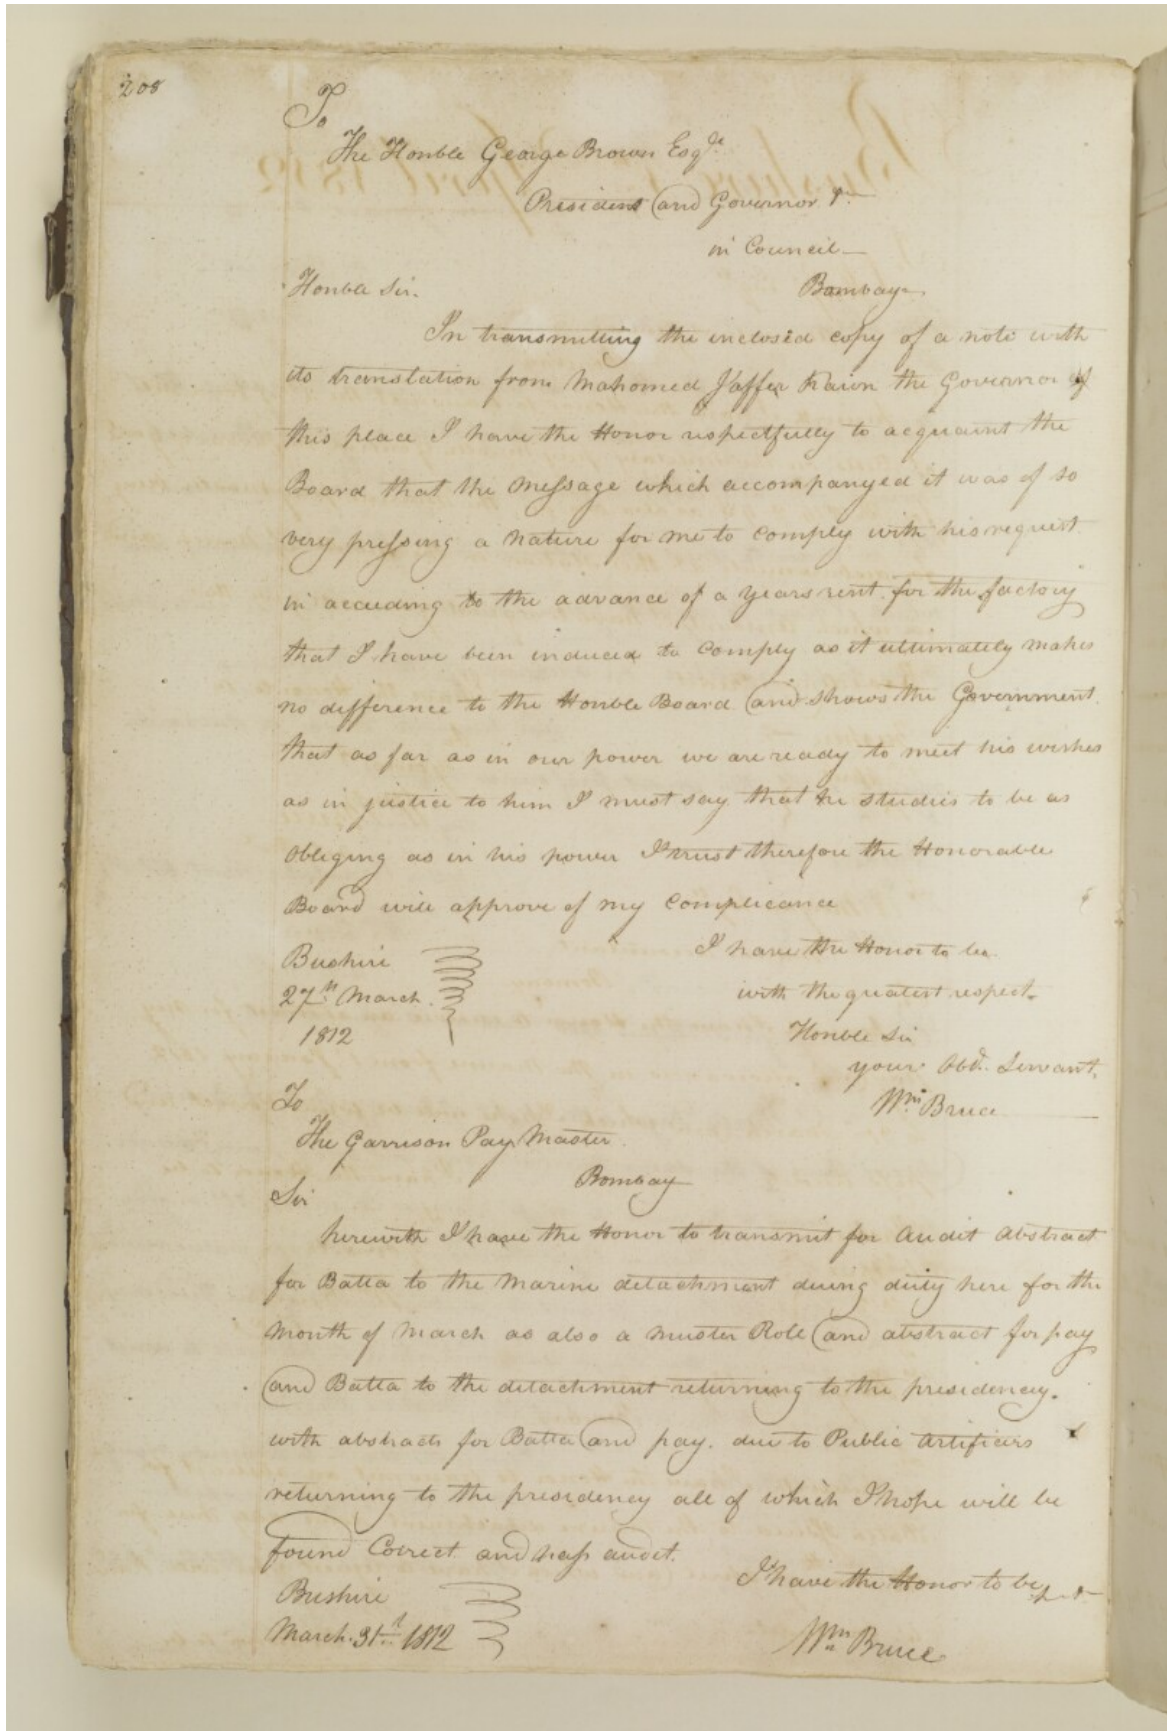 208
To
The Honble George Brown Esqre
President and Governor &c
in Council
Honble Sir. Bombay
In transmitting the inclosed copy of a note with
its translation from Mahomed Jaffer the Governor of
this place I have the Honor respectfully to acquaint the
Board that the Message which accompanyed it was of so
very pressing a nature for me to comply with his request
in acceeding to the advance of a years rent for the factory
that I have been induced to comply as it ultimately makes
no difference to the Honble Board and shows the Government
that as far as in our power we are ready to meet his wishes
as in justice to him I must say that he studies to be as
obliging as in his power I trust therefore the Honorable
Board will approve of my Complicance
Bushire I have the Honor to be
27th March with the greatest respect
1812 Honble Sir
your Obdt. Servant,
Wm Bruce
To
The Garrison Pay Master
Bombay
Sir
herewith I have the Honor to transmit for Audit Abstract
for Batta to the Marine detachment duing duty here for the
Month of March as also a muster Role and abstract for pay
and Batta to the detachment returning to the presidency.
with abstracts for Batta and pay. due to Public Artificers
returning to the presidency all of which I hope will be
found Correct and pass audit.
Bushire I have the Honor to be &c
March. 31st 1812 Wm Bruce